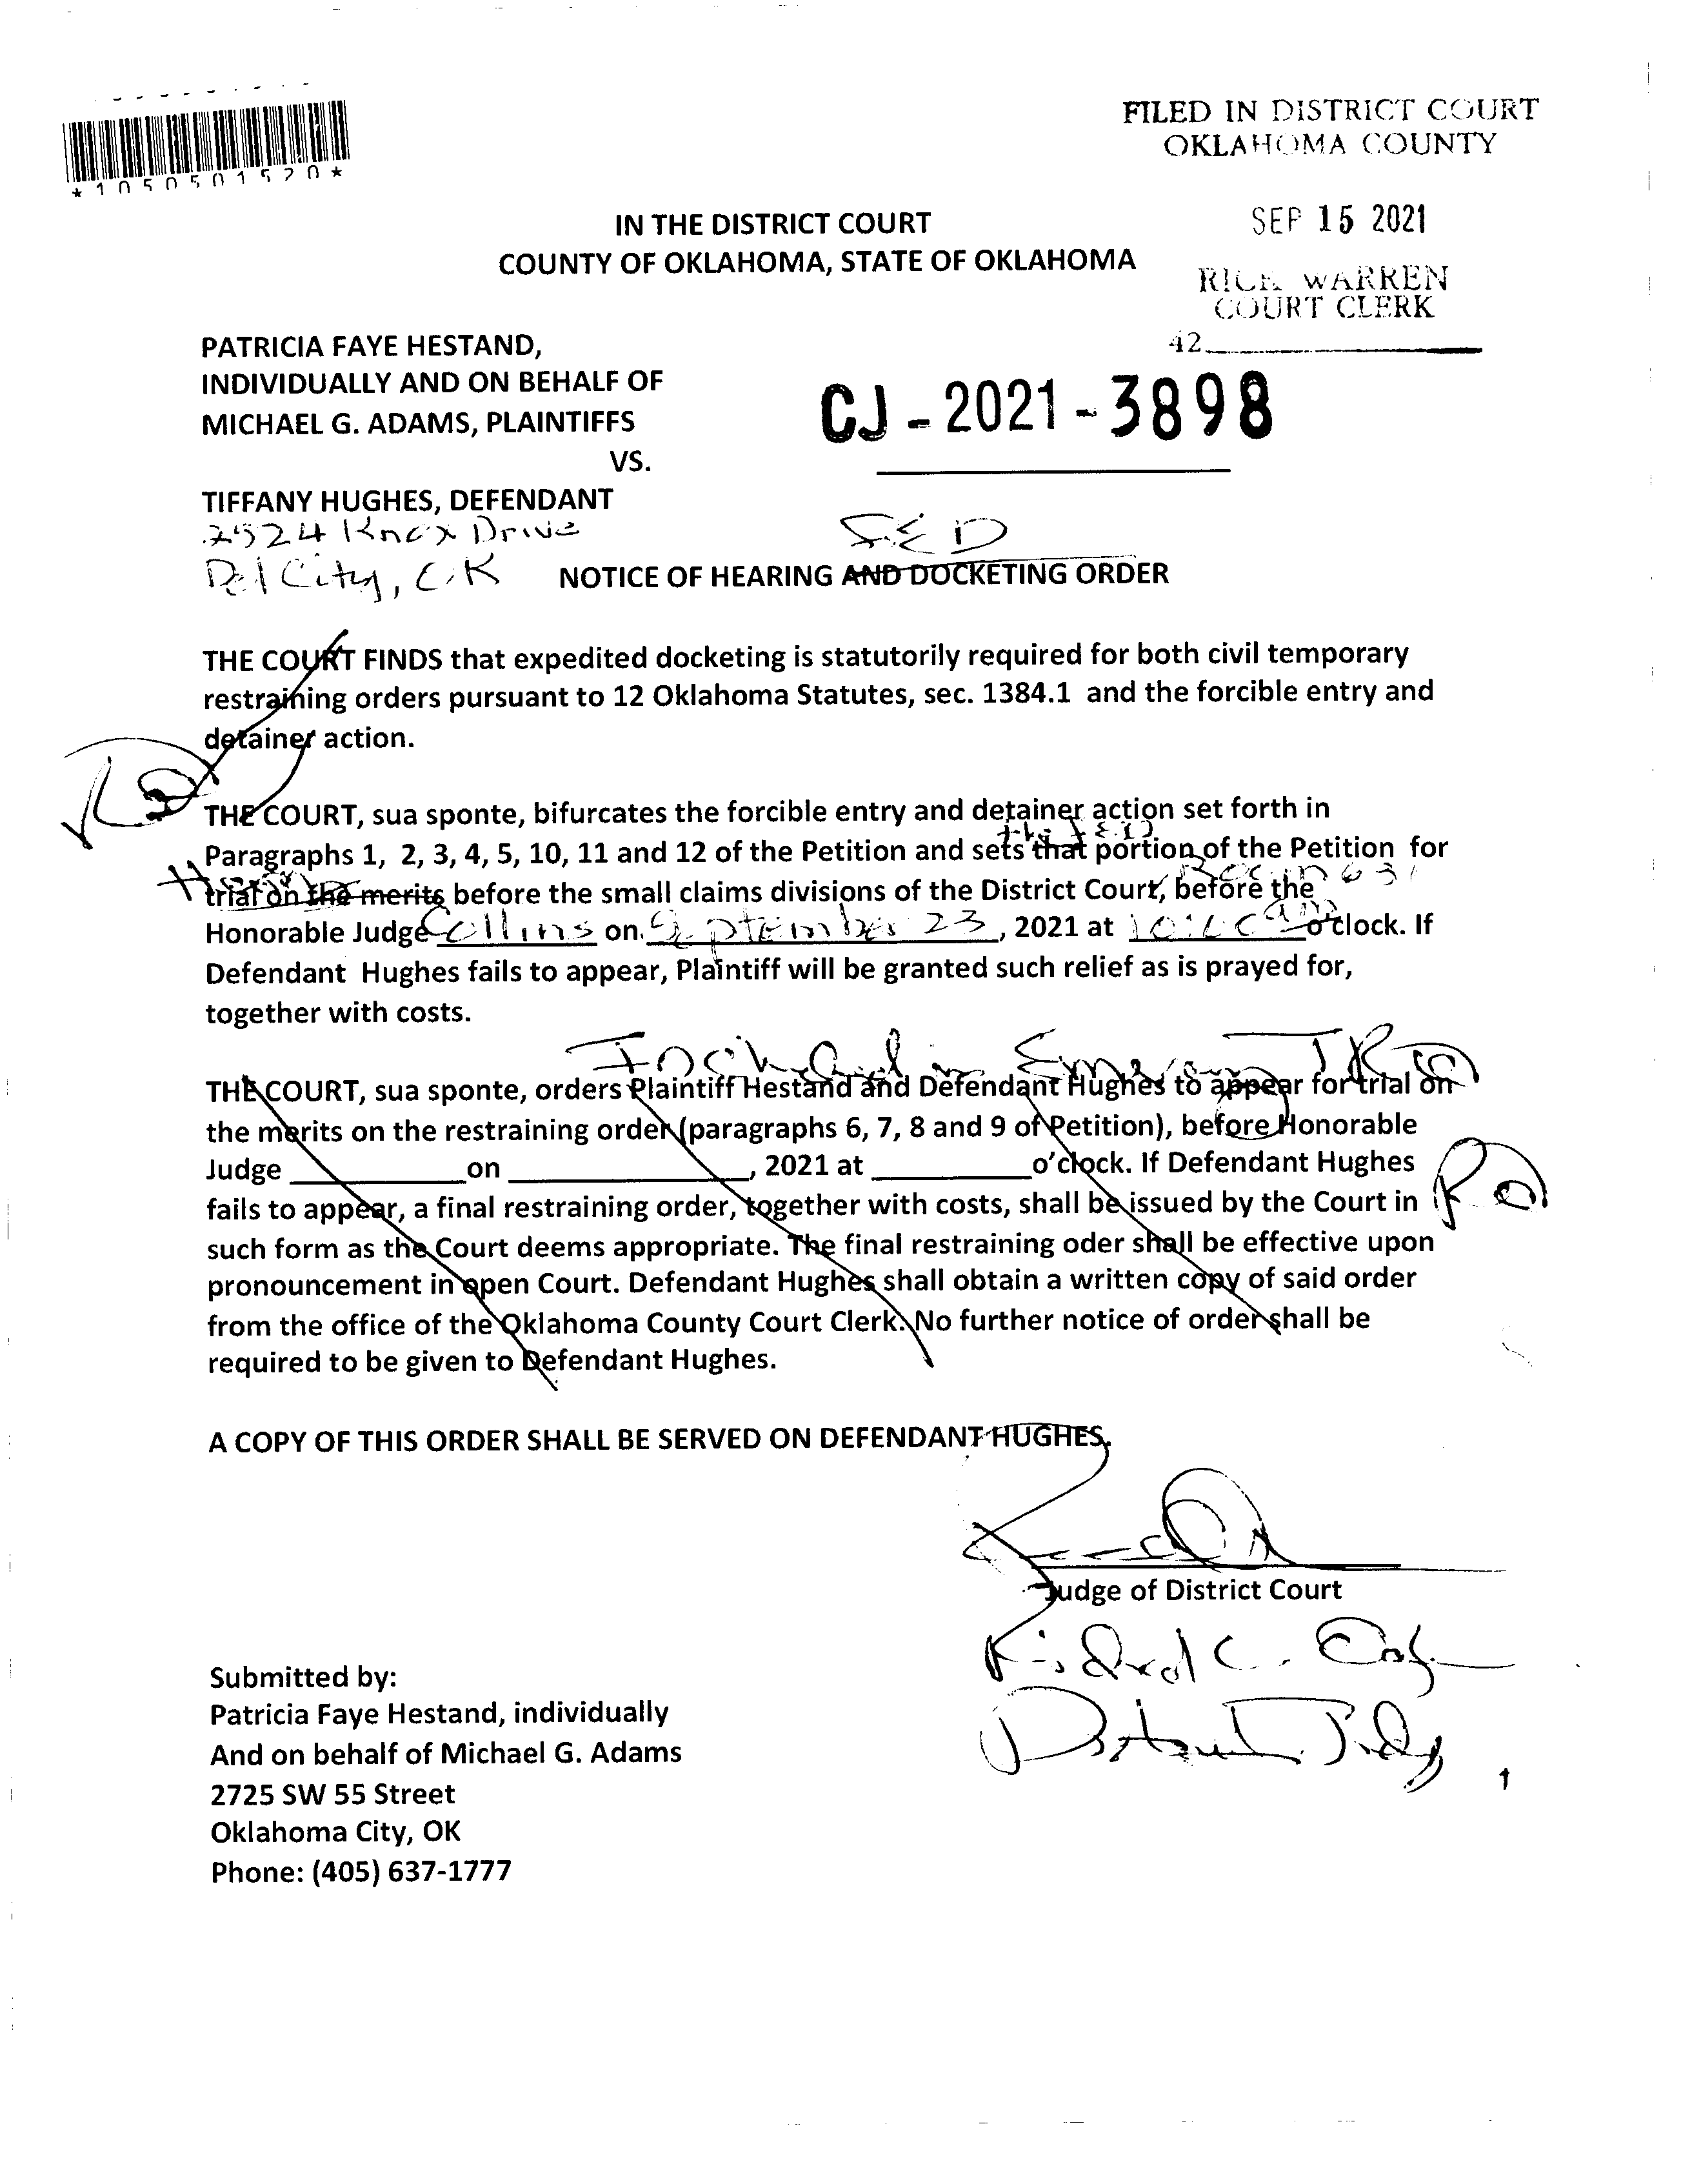 *1050501520*
FILED IN DISTRICT COURT
OKLAHOMA COUNTY
SEP 15 2021
RICK WARREN
COURT CLERK
42
IN THE DISTRICT COURT
COUNTY OF OKLAHOMA, STATE OF OKLAHOMA
PATRICIA FAYE HESTAND,
INDIVIDUALLY AND ON BEHALF OF
MICHAEL G. ADAMS, PLAINTIFFS
CJ-2021-3898
VS.
TIFFANY HUGHES, DEFENDANT
2524 Knox Drive
Del City, OK
NOTICE OF HEARING AND DOCKETING ORDER
THE COURT FINDS that expedited docketing is statutorily required for both civil temporary
restraining orders pursuant to 12 Oklahoma Statutes, sec. 1384.1 and the forcible entry and
detainer action.
THE COURT, sua sponte, bifurcates the forcible entry and detainer action set forth in
the
Paragraphs 1, 2, 3, 4, 5, 10, 11 and 12 of the Petition and sets that portion of the Petition for
Room 631
trial on the merits before the small claims divisions of the District Court, before the
Honorable Judge Collins on September 23, 2021 at 10:00 am o'clock. If
Defendant Hughes fails to appear, Plaintiff will be granted such relief as is prayed for,
together with costs.
THE COURT, sua sponte, orders Plaintiff Hestand and Defendant Hughes to appear for trial on
the merits on the restraining order (paragraphs 6, 7, 8 and 9 of Petition), before Honorable
Judge on , 2021 at o'clock. If Defendant Hughes
fails to appear, a final restraining order, together with costs, shall be issued by the Court in
such form as the Court deems appropriate. The final restraining oder shall be effective upon
pronouncement in open Court. Defendant Hughes shall obtain a written copy of said order
from the office of the Oklahoma County Court Clerk. No further notice of order shall be
required to be given to Defendant Hughes.
A COPY OF THIS ORDER SHALL BE SERVED ON DEFENDANT HUGHES.
Judge of District Court
Submitted by:
Patricia Faye Hestand, individually
And on behalf of Michael G. Adams
2725 SW 55 Street
Oklahoma City, OK
Phone: (405) 637-1777
1